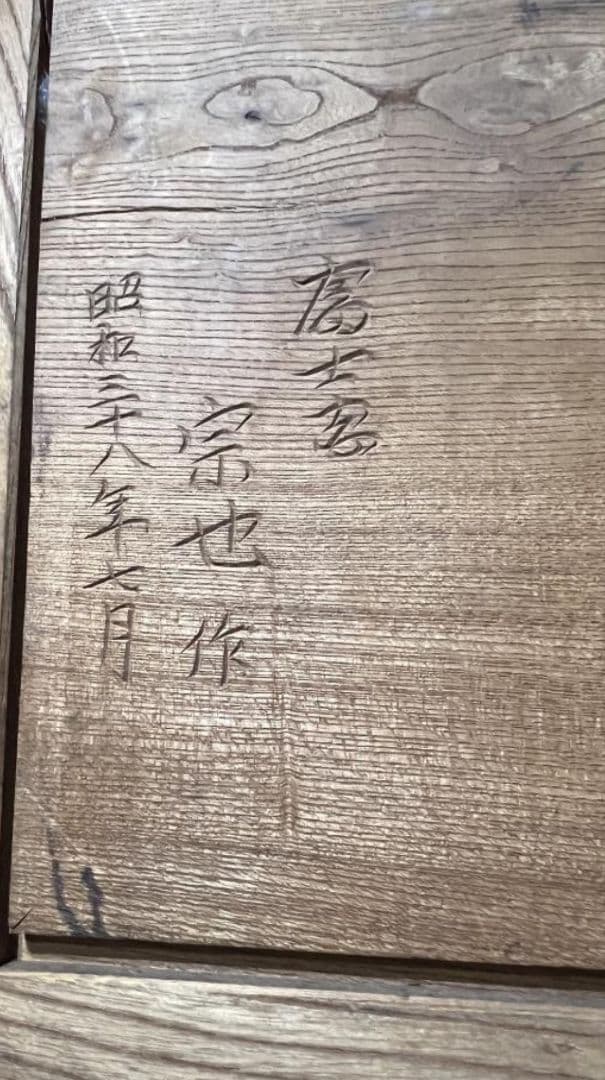 富士窓
宗也 作
昭和三十八年七月